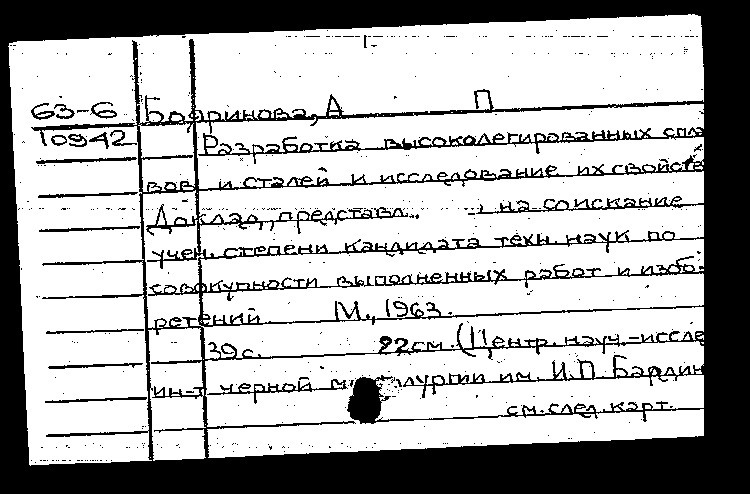 63-6 Бояринова, А П
10942 Разработка высоколегированных спла
вов и сталей и исследование их свойств
Доклад, представл... на соискание
учен. степени кандидата техн. наук по
совокупности выполненных работ и изоб-
ретений М., 1963.
39 с. 22 см. (Центр. науч.-иссле
ин-т черной металлургии им. И.П. Бардин
см. след. карт.